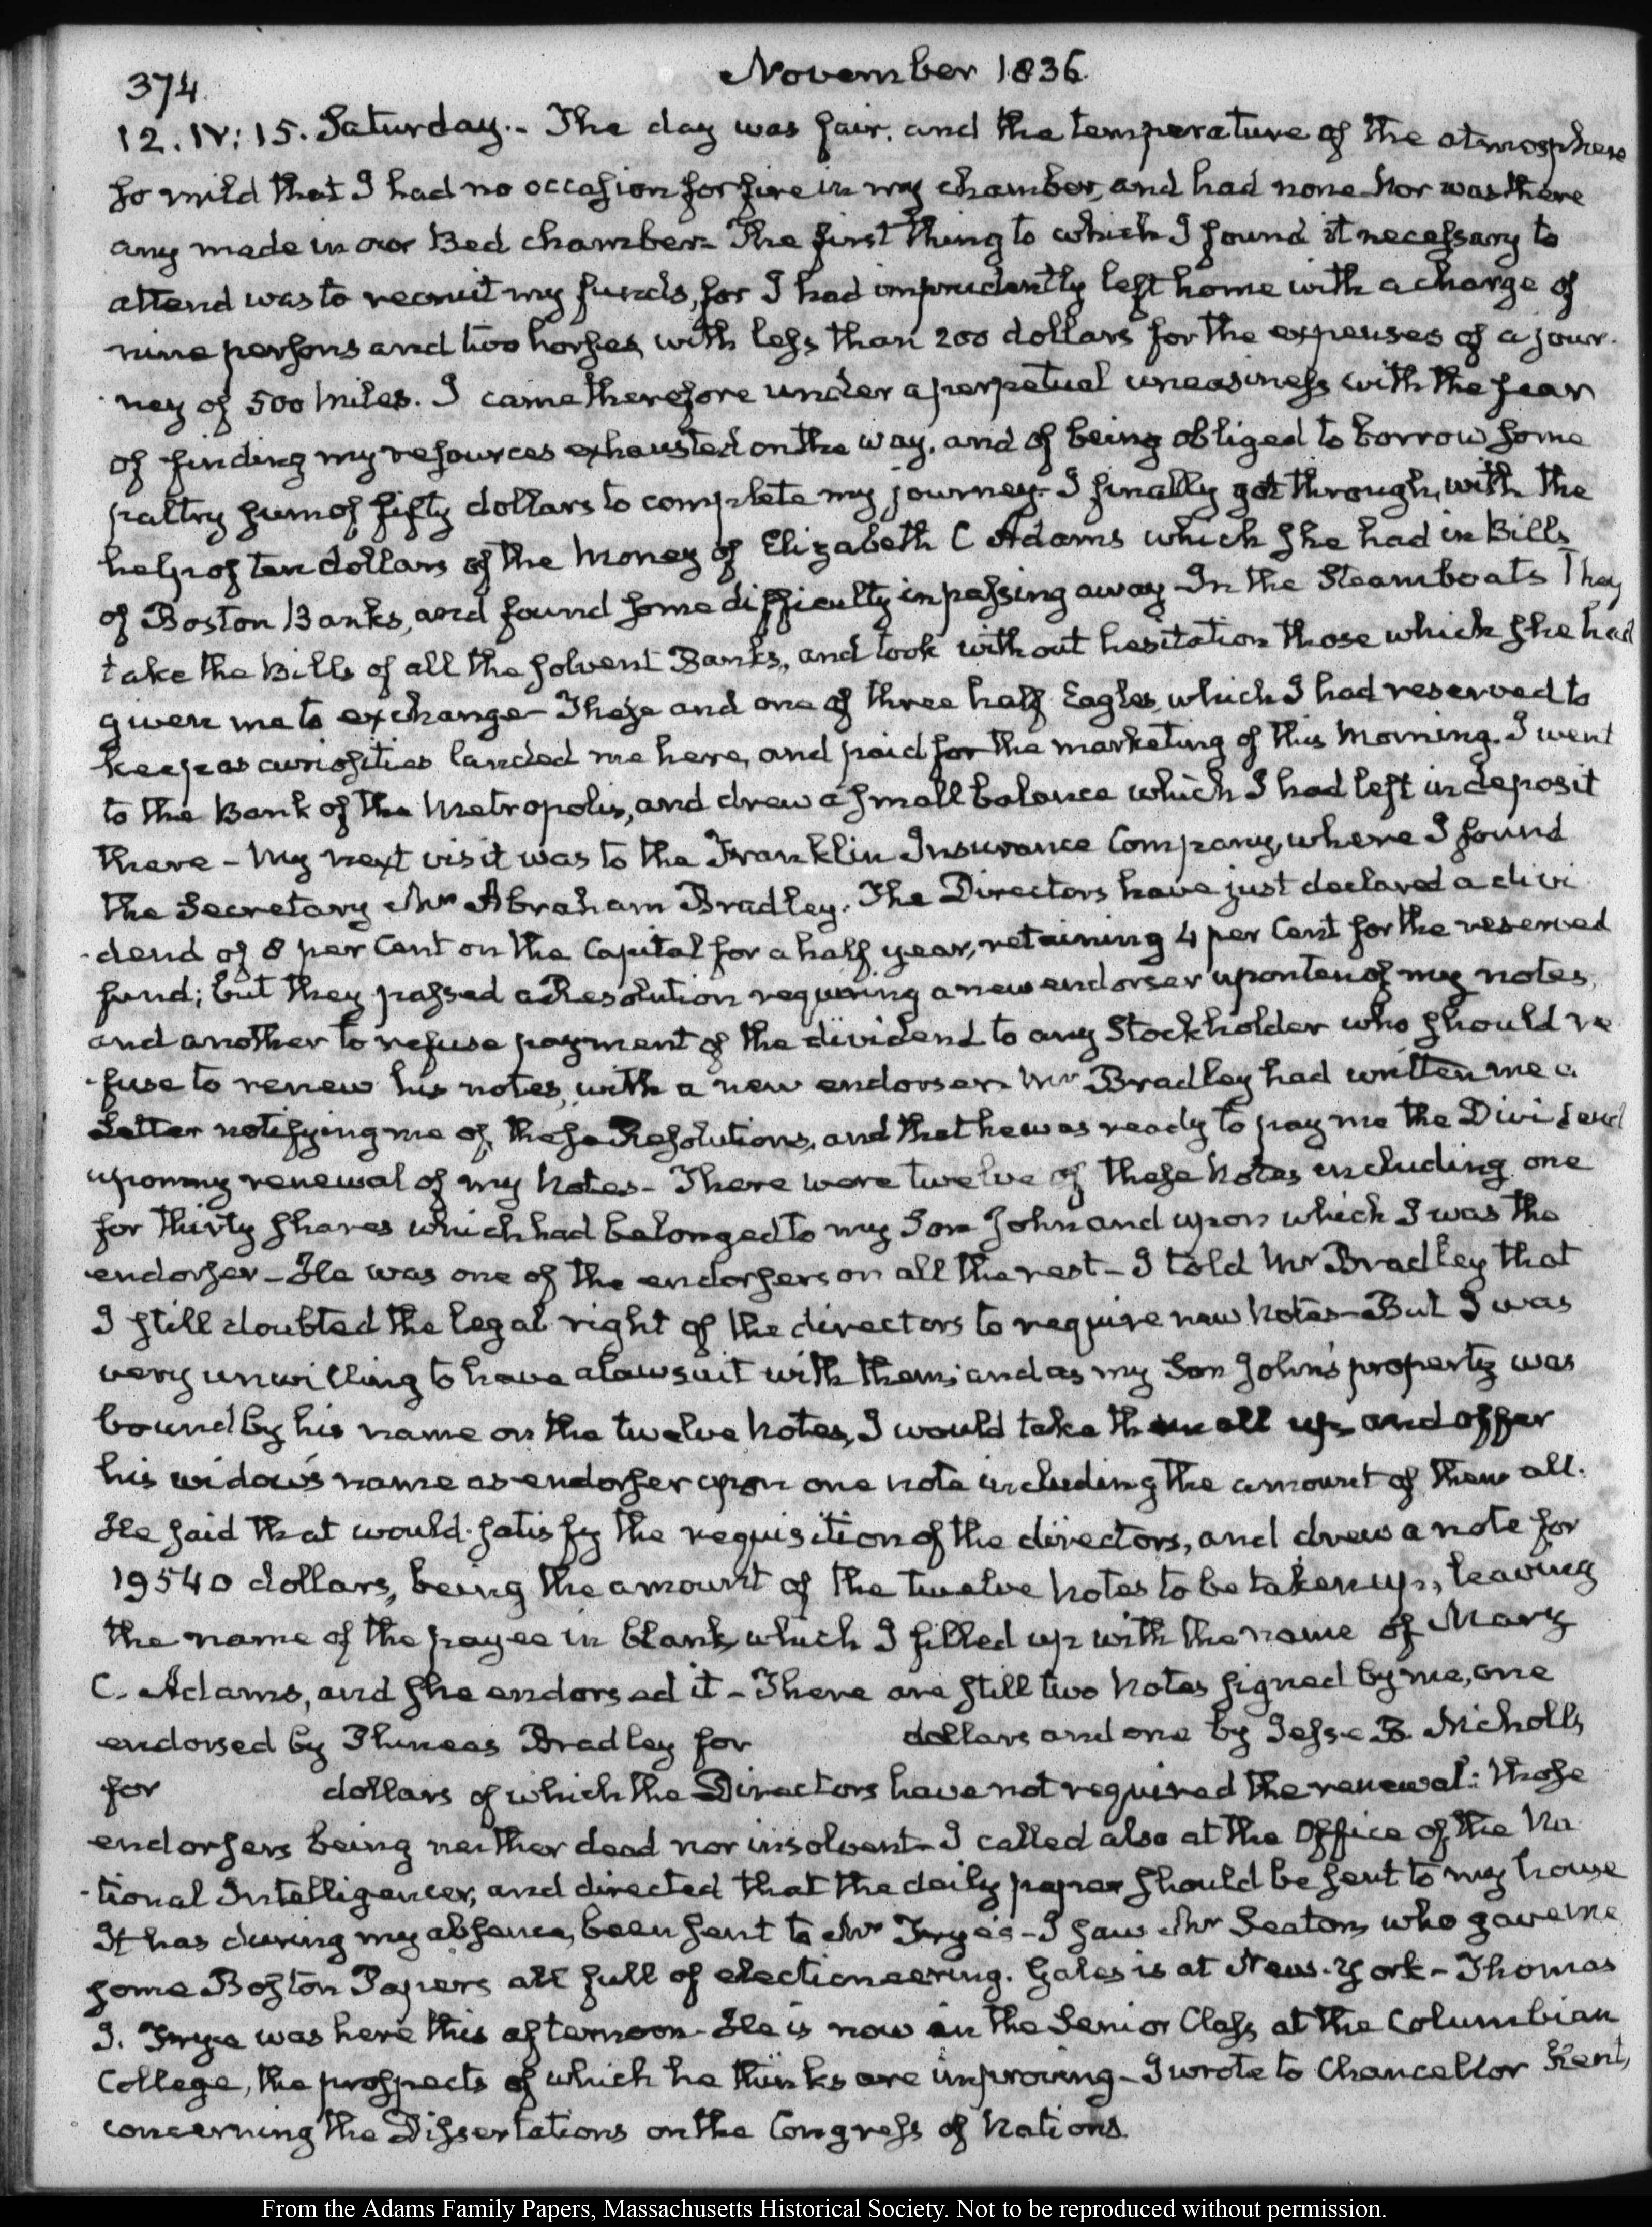 374
November 1836
12. IV: 15. Saturday.- The day was fair. and the temperature of the atmosphere
so mild that I had no occasion for fire in my chamber, and had none Nor was there
any made in our Bed chamber- The first thing to which I found it necessary to
attend was to recruit my funds, for I had imprudently left home with a charge of
nine persons and two horses, with less than 200 dollars for the expenses of a jour-
-ney of 500 miles. I came therefore under a perpetual uneasiness with the fear
of finding my resources exhausted on the way, and of being obliged to borrow some
paltry sum of fifty dollars to complete my journey- I finally got through, with the
help of ten dollars of the money of Elizabeth C Adams which she had in Bills
of Boston Banks, and found some difficulty in passing away- In the Steamboats They
take the Bills of all the solvent Banks, and took without hesitation those which she had
given me to exchange- These and one of three half Eagles, which I had reserved to
keep as curiosities landed me here, and paid for the marketing of this morning. I went
to the Bank of the Metropolis, and drew a small balance which I had left in deposit
there - My next visit was to the Franklin Insurance Company, where I found
the Secretary Mr Abraham Bradley. The Directors have just declared a divi
-dend of 8 per Cent on the Capital for a half year, retaining 4 per Cent for the reserved
fund; but they passed a Resolution requiring a new endorser upon ten of my notes,
and another to refuse payment of the dividend to any Stockholder who should re
-fuse to renew his notes, with a new endorser- Mr Bradley had written me a
Letter notifying me of these Resolutions, and that he was ready to pay me the Dividend
upon my renewal of my Notes- There were twelve of these Notes including one
for thirty shares which had belonged to my Son John and upon which I was the
endorser- He was one of the endorsers on all the rest- I told Mr Bradley that
I still doubted the legal right of the directors to require new Notes- But I was
very unwilling to have a lawsuit with them; and as my Son John's property was
bound by his name on the twelve Notes, I would take them all up and offer
his widow's name as endorser upon one note including the amount of them all.
He said that would satisfy the requisition of the directors, and drew a note for
19540 dollars, being the amount of the twelve Notes to be taken up, leaving
the name of the payee in blank, which I filled up with the name of Mary
C. Adams, and she endorsed it- There are still two Notes signed by me, one
endorsed by Phineas Bradley for dollars and one by Jesse B. Nicholls
for dollars of which the Directors have not required the renewal: those
endorsers being neither dead nor insolvent- I called also at the Office of the Na
-tional Intelligencer, and directed that the daily paper should be sent to my house
It has during my absence, been sent to Mr Frye's- I saw Mr Seaton, who gave me
some Boston Papers all full of electioneering. Gales is at New-York- Thomas
J. Frye was here this afternoon- He is now in the Senior Class at the Columbian
College, the prospects of which he thinks are improving- I wrote to Chancellor Kent,
concerning the Dissertations on the Congress of Nations.
From the Adams Family Papers, Massachusetts Historical Society. Not to be reproduced without permission.